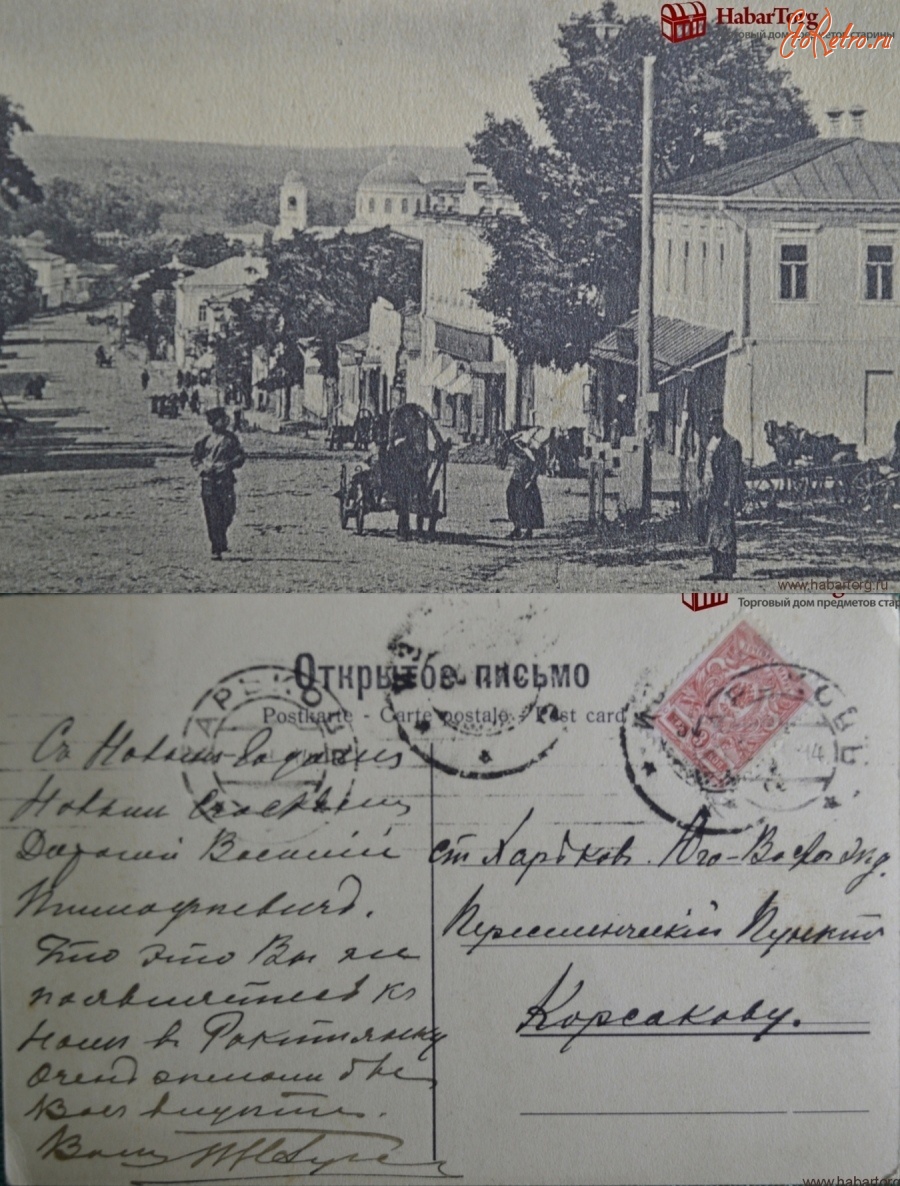 HabarTorg
Торговый дом предметов старины
EtoRetro.ru
www.habartorg.ru
Торговый дом предметов стар
Открытое письмо
Postkarte - Carte postale - Post card
Съ Новымъ Годомъ
Новым Счастьем
Дорогой Василий
Тимофеевичъ.
Что это Вы не
появляетесь къ
нам в
Очень желали бы
Вас видеть.
Ваш
ст Харьков. Юго-Вост. жд.
Переселенческій Пунктъ
Корсакову.
www.habartorg